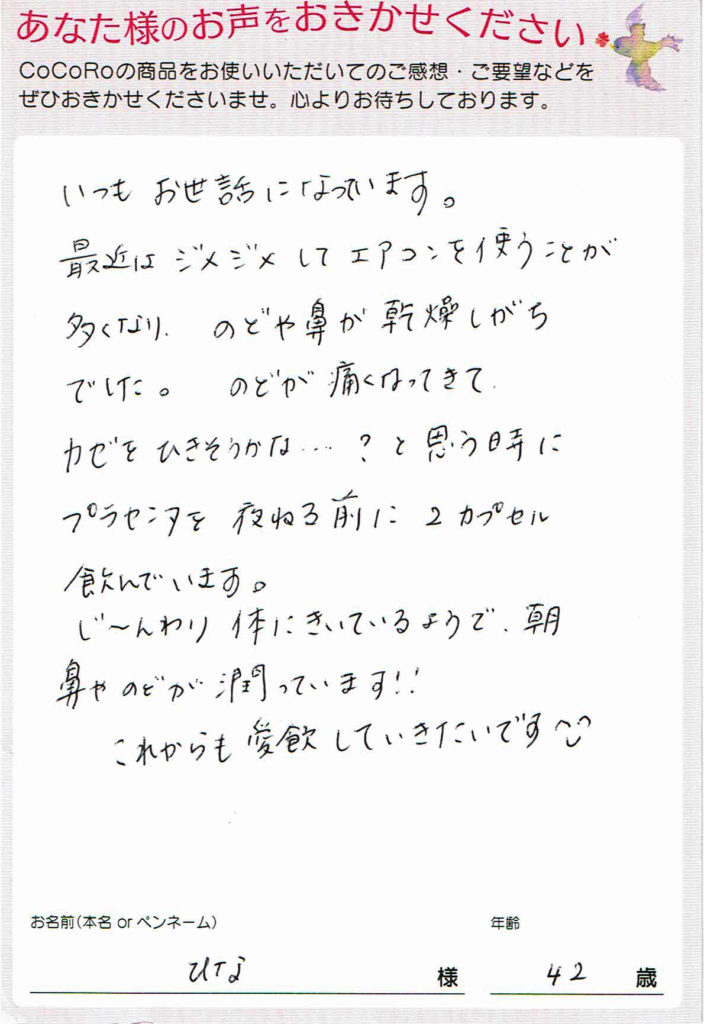 あなた様のお声をおきかせください
CoCoRoの商品をお使いいただいてのご感想・ご要望などを
ぜひおきかせくださいませ。心よりお待ちしております。
いつも お世話になっています。
最近は ジメジメ して エアコンを使うことが
多くなり、 のどや鼻が 乾燥しがち
でした。 のどが 痛くなってきて、
カゼを ひきそうかな…? と 思う時に
プラセンタを 夜ねる前に 2 カプセル
飲んでいます。
じ〜んわり 体にきいているようで、朝
鼻や のどが 潤っています!!
これからも 愛飲 していきたいです
お名前(本名 or ペンネーム)
年齢
ひな 様
42 歳